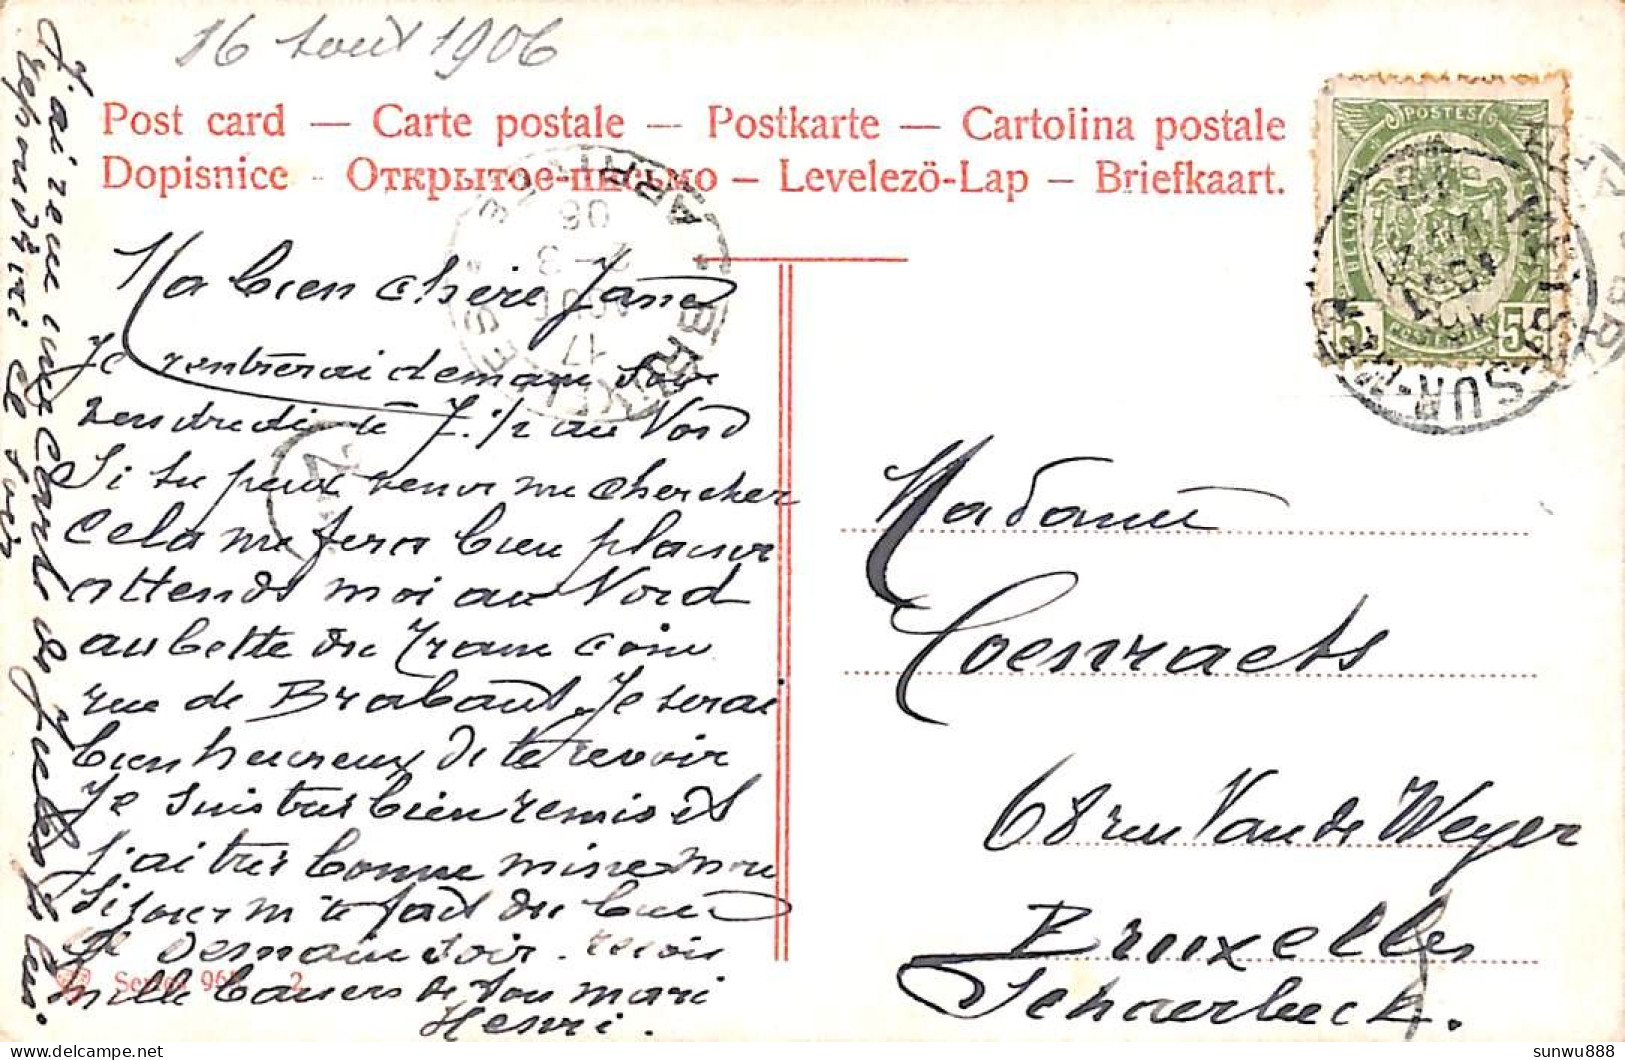 16 Août 1906
Post card — Carte postale — Postkarte — Cartolina postale
Dopisnice - Открытое-письмо – Levelezö-Lap – Briefkaart.
Ma bien chère Jane
Je rentrerai demain soir
vendredi à 7.½ au Nord
Si tu peux venir me chercher
cela me fera bien plaisir
attends moi au Nord
aubette du Tram coin
rue de Brabant. Je serai
bien heureux de te revoir
Je suis très bien remis et
j'ai très bonne mine mon
séjour m'a fait du bien
demain soir. reçois
mille baisers de ton mari
Henri.
J'ai reçu une carte de Jules
répondrai ce soir
Series 96 2
POSTES
BELGIQUE
5 5
ARRIVÉE
BRUXELLES
17
AOUT
06
SUR-MER
Madame
Coenraets
68 rue Van de Weyer
Bruxelles
Schaerbeek.
sunwu888